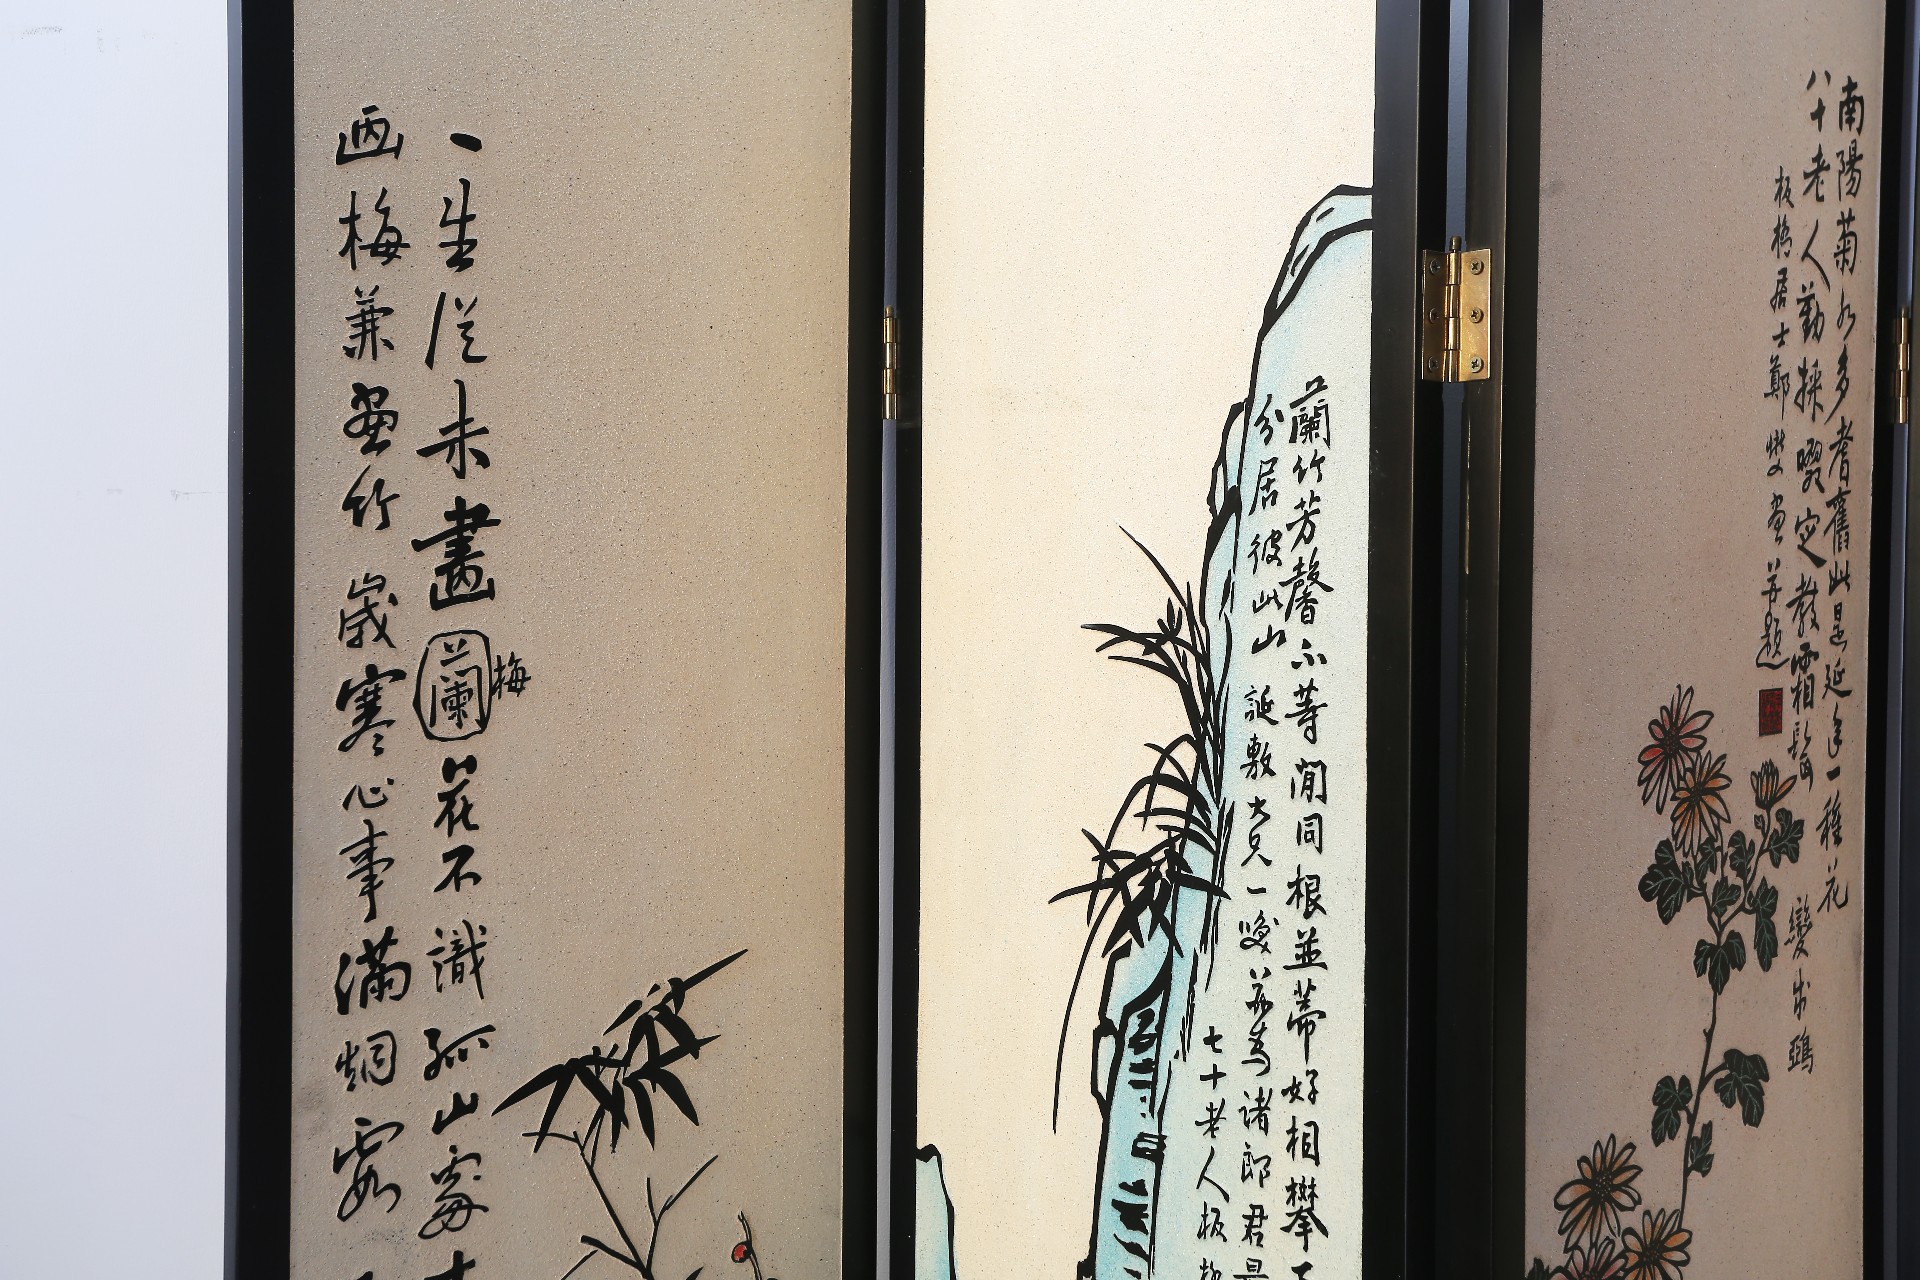 南陽菊水多耆舊此是延年一種花
八十老人勤採啜定教霜鬢變成鴉
板橋居士鄭燮畫并題
蘭竹芳馨不等閒同根並蒂好相攀
分居彼此山 誕敷大兄一 并為諸郎君
七十老人板
一生從未畫蘭梅花不識孤山處
画梅兼畫竹歲寒心事滿烟霞